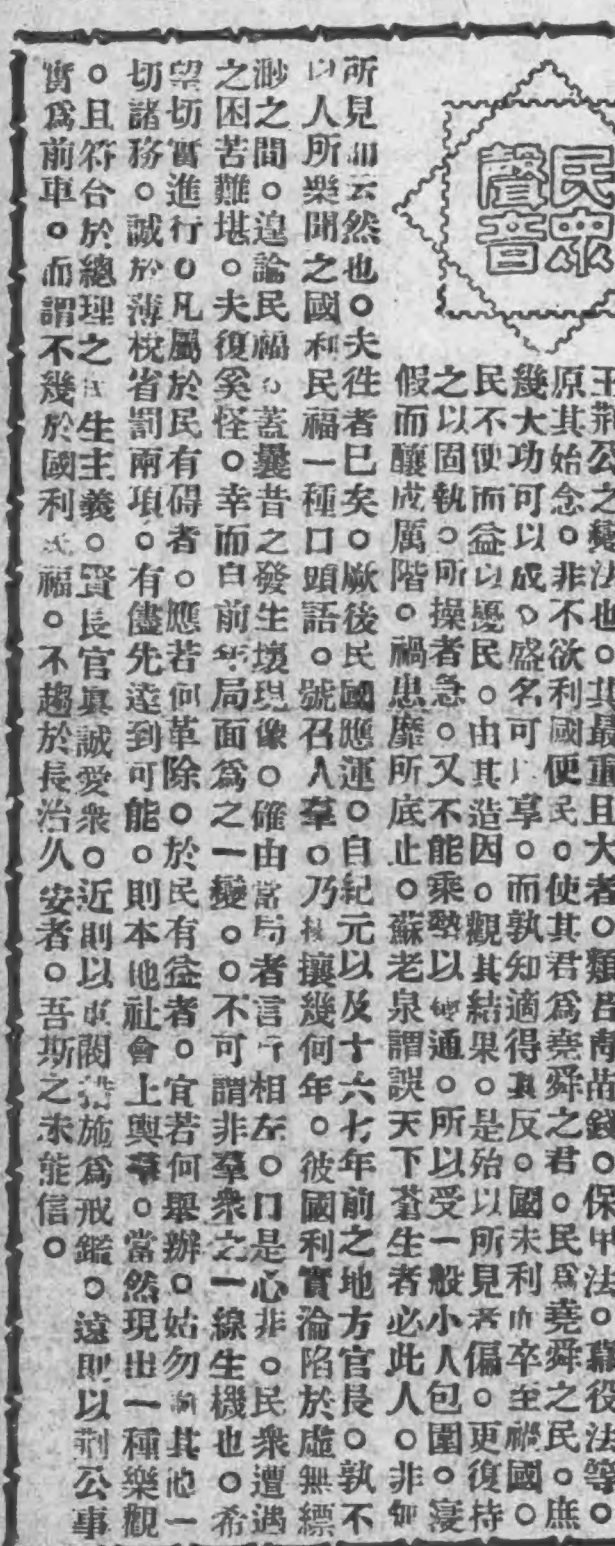 民衆
聲音
王荊公之變法也。其最重且大者。類皆青苗錢。保甲法。募役法等。
原其始念。非不欲利國便民。使其君爲堯舜之君。民爲堯舜之民。庶
幾大功可以成。盛名可享。而孰知適得其反。國未利而卒至禍國。
民不便而益以擾民。由其造因。觀其結果。是殆以所見者偏。更復持
之以固執。所操者急。又不能乘勢以變通。所以受一般小人包圍。寖
假而釀成厲階。禍患靡所底止。蘇老泉謂誤天下蒼生者必此人。非如
所見如云然也。夫徃者已矣。厥後民國應運。自紀元以及十六七年前之地方官長。孰不
以人所樂聞之國利民福一種口頭語。號召人羣。乃攘幾何年。彼國利實淪陷於虛無縹
渺之間。遑論民福。蓋曩昔之發生壞現像。確由當局者言行相左。口是心非。民衆遭遇
之困苦難堪。夫復奚怪。幸而目前局面爲之一變。。不可謂非羣衆之一線生機也。希
望切實進行。凡屬於民有碍者。應若何革除。於民有益者。宜若何舉辦。姑勿其他一
切諸務。誠於薄稅省罰兩項。有儘先達到可能。則本地社會上輿羣。當然現出一種樂觀
。且符合於總理之生主義。賢長官眞誠愛衆。近則以閥措施爲戒鑑。遠則以荊公事
實爲前車。而謂不幾於國利民福。不趨於長治久安者。吾斯之未能信。